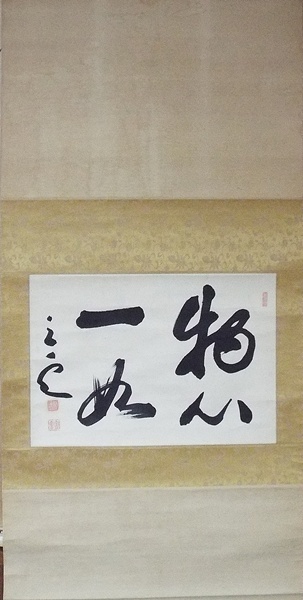 物心
一如